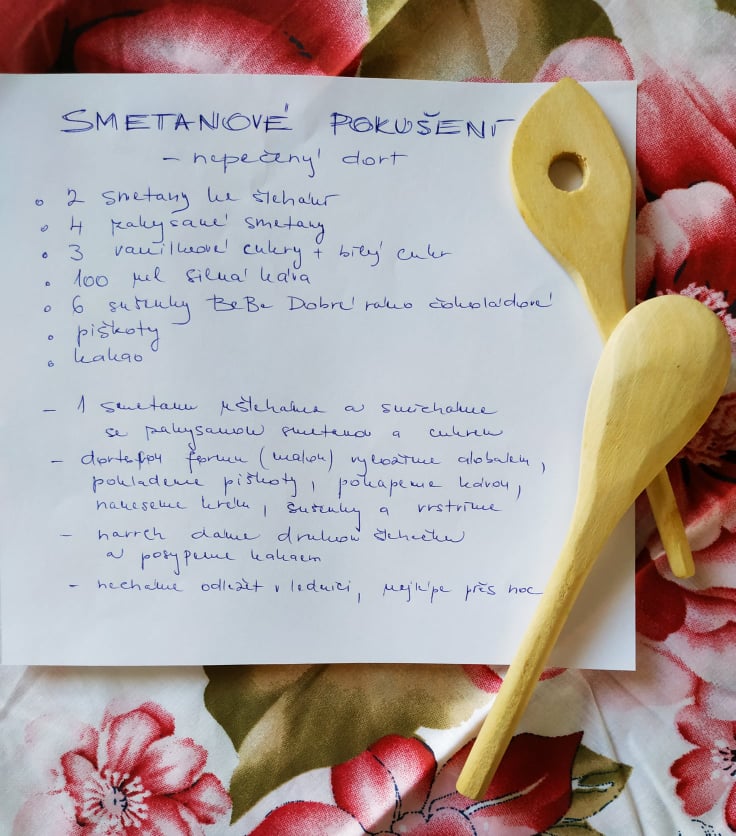 SMETANOVÉ POKUŠENÍ
- nepečený dort
• 2 smetany ke šlehání
• 4 zakysané smetany
• 3 vanilkové cukry + bílý cukr
• 100 ml silná káva
• 6 sušenky BeBe Dobré ráno čokoládové
• piškoty
• kakao
- 1 smetanu ušleháme a smícháme
se zakysanou smetanou a cukrem
- dortovou formu (malou) vyložíme alobalem,
poklademe piškoty, pokapeme kávou,
naneseme krém, sušenky a vrstvíme
- navrch dáme druhou šlehačku
a posypeme kakaem
- necháme odležet v lednici, nejlépe přes noc